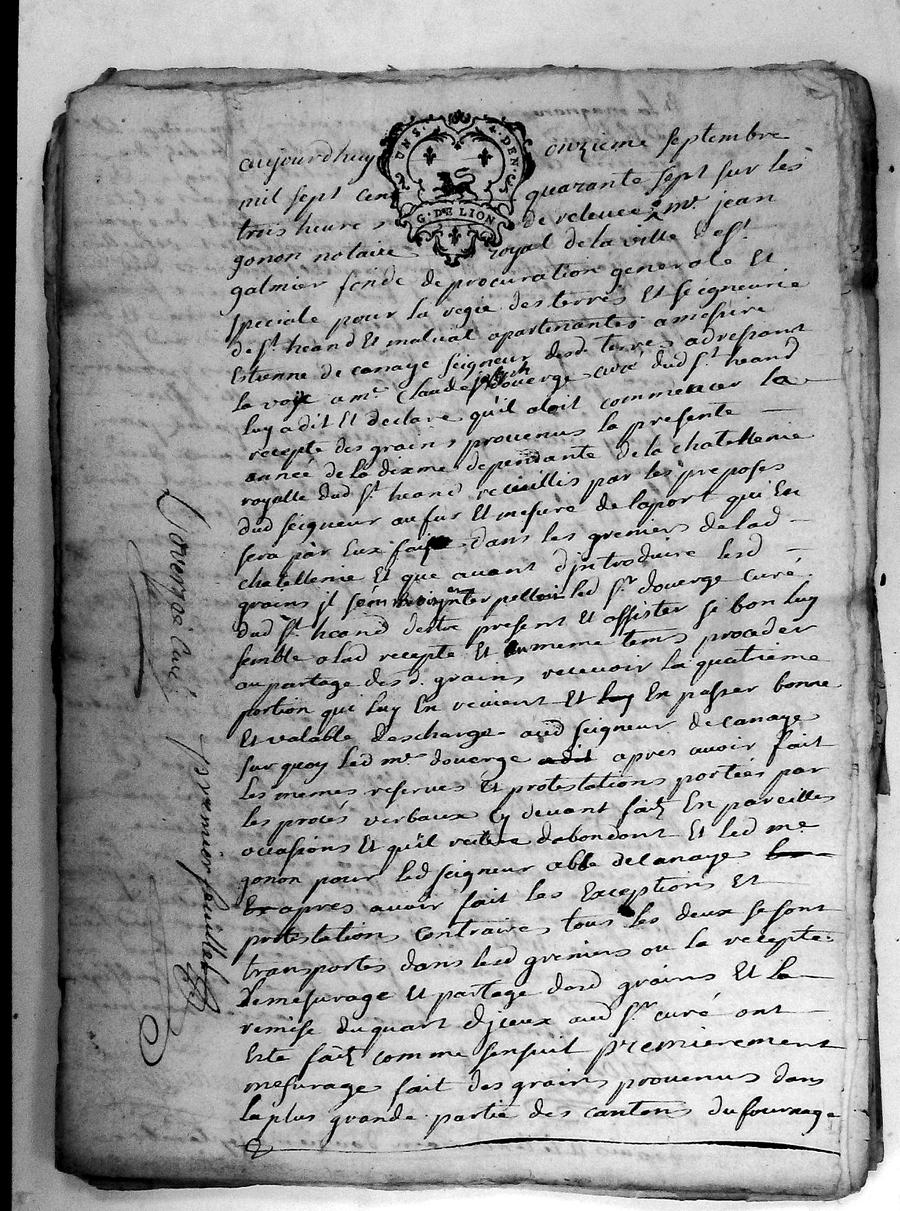 UN S. 4. DEN.
G. DE LION
aujourdhuy onzieme septembre
mil sept cent quarante sept sur les
trois heures de relevee mr. jean
gonon notaire royal de la ville de st.
galmier fondé de procuration generale et
speciale pour la regie des terres et seigneurie
de st. heand et malval apartenantes a messire
Estienne de canaye seigneur desd. terres adressant
la voix a mr. Claude joseph douerge curé dud st. heand
luy a dit et declare qu'il aloit commencer la
recepte des grains prouenus la presente
année de la dixme dependante de la chatellenie
royalle dud st. heand recueillis par les preposes
dud seigneur au fur et mesure de laport qui En
sera par Eux fait dans les greniers de lad
chatellenie Et que avant d'introduire lesd
grains il led sr. douerge curé
dud st. heand destre present et assister si bon luy
semble a lad recepte et au meme tems proceder
au partage desd. grains recevoir la quatrieme
portion qui luy En revient Et luy En passer bonne
Et valable descharge aud seigneur de canaye
sur quoy led mr. douerge a dit apres avoir fait
les memes reserves Et protestations portées par
les procés verbaux cy devant faits En pareilles
occasions Et qu'il reitere dabondont Et led me.
gonon pour led seigneur abbé de canaye
Et apres avoir fait les Exceptions Et
protestations contraires tous les deux se sont
transportes dans lesd greniers ou la recepte
demesurage et partage desd grains Et la
remise du quart d'jceux aud sr. curé ont
Esté faits comme sensuit premierement
mesurage fait des grains prouenus dans
la plus grande partie des cantons du fournage
Douerge Curé
premier feuillet